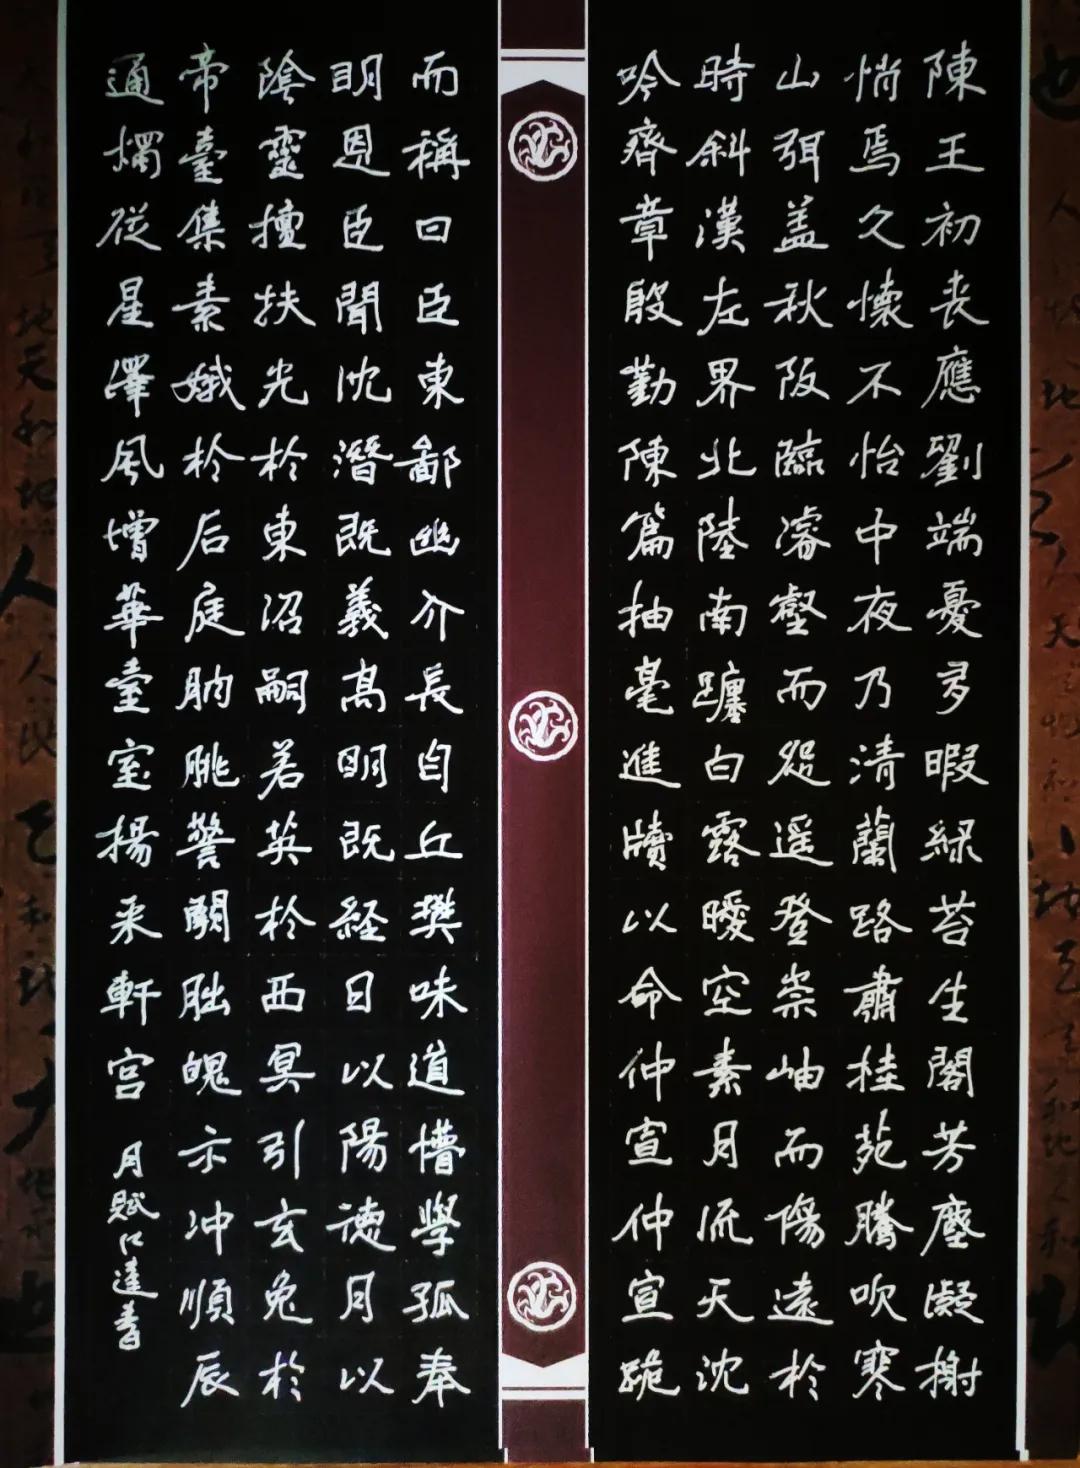 陳王初丧應劉端憂多暇緑苔生閣芳塵凝榭
悄焉久懷不怡中夜乃清蘭路肅桂苑騰吹寒
山弭盖秋阪臨濬壑而怨遥登崇岫而傷遠於
時斜漢左界北陸南躔白露曖空素月流天沈
吟齊章殷勤陳篇抽毫進牘以命仲宣仲宣跪
而稱曰臣東鄙幽介長自丘樊味道懵學孤奉
明恩臣聞沈潛既義高明既経日以陽德月以
陰靈擅扶光於東沼嗣若英於西冥引玄兔於
帝臺集素娥於后庭朒朓警闕朏魄示冲順辰
通燭從星澤風增華臺室揚采軒宮
月賦 達書